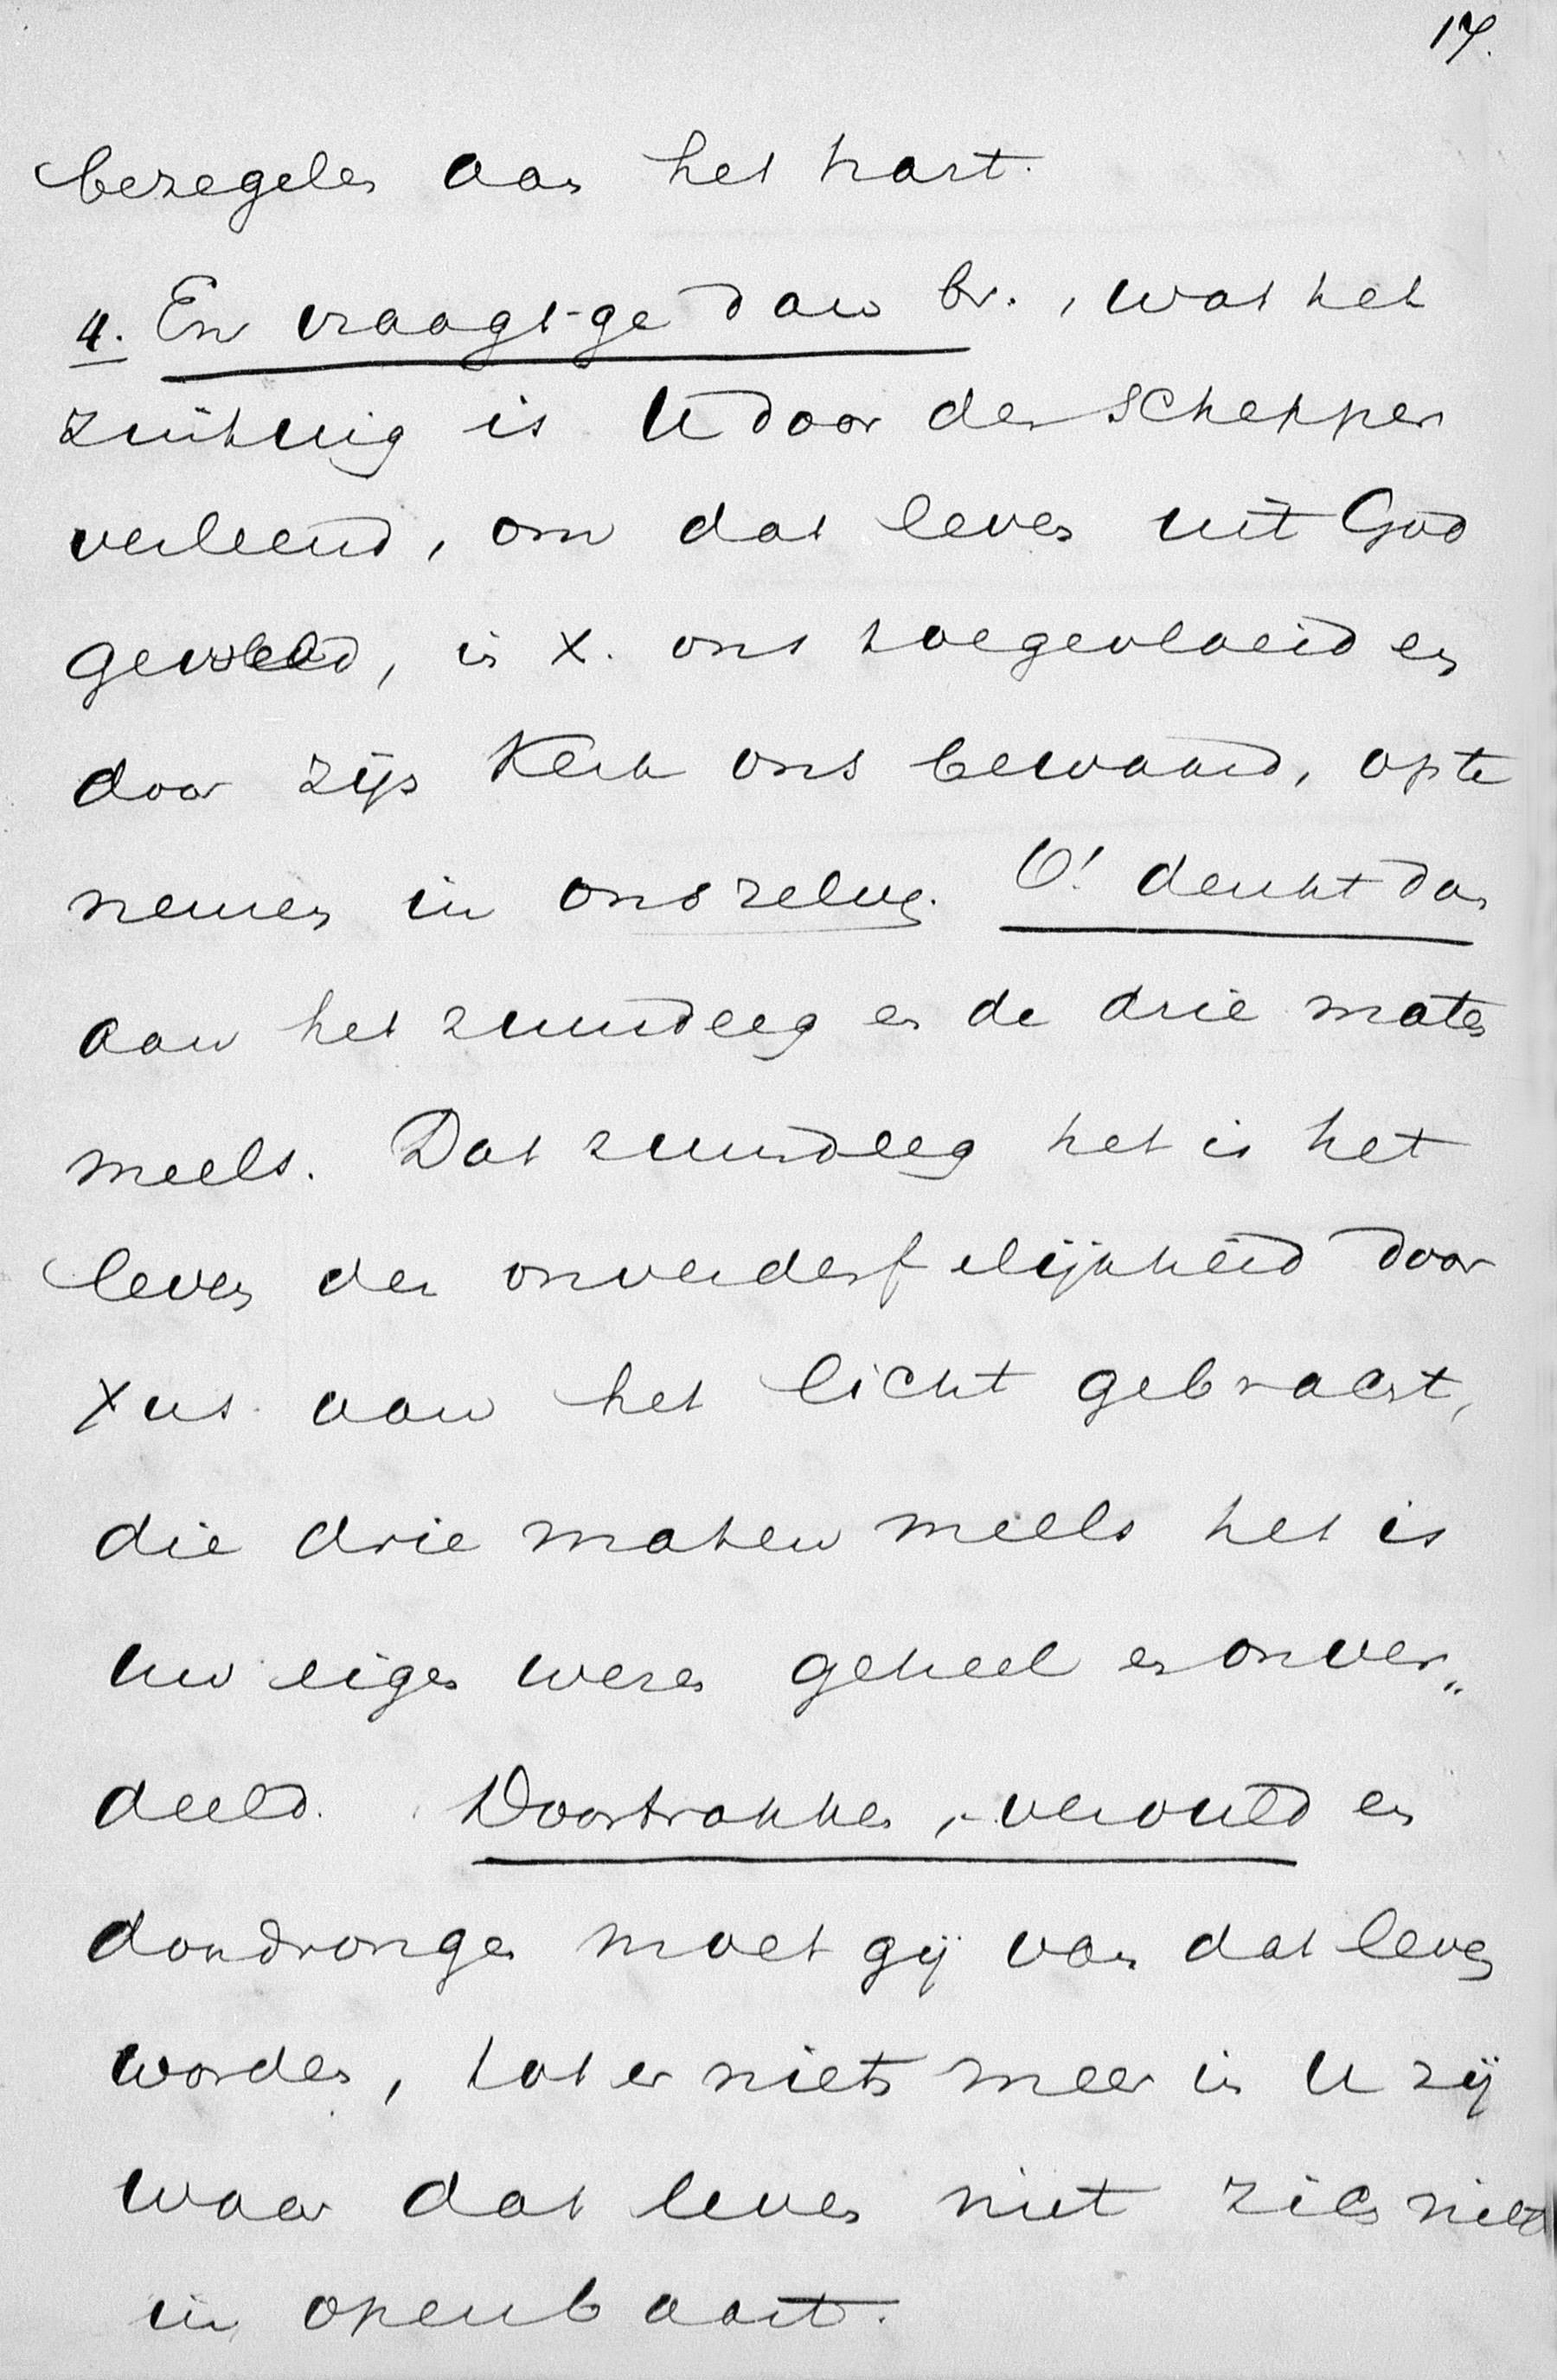 17.
bezegelen aan het hart.
4. En vraagt-ge dan br., wat het
zintuig is U door den Schepper
verleend, om dat leven uit God
geweld, in X. ons toegevloeid en
door zijn Kerk ons bewaard, op te
nemen in ons zelven. O! denkt dan
aan het zuurdeeg en de drie maten
meels. Dat zuurdeeg het is het
leven der onverderfelijkheid door
Xus aan het licht gebracht,
die drie maten meels het is
uw eigen wezen geheel en onver„
deeld. Doortrokken, vervuld en
doordrongen moet gij van dat leven
worden, tot er niets meer in U zij
waar dat leven niet zich niet
in openbaart.